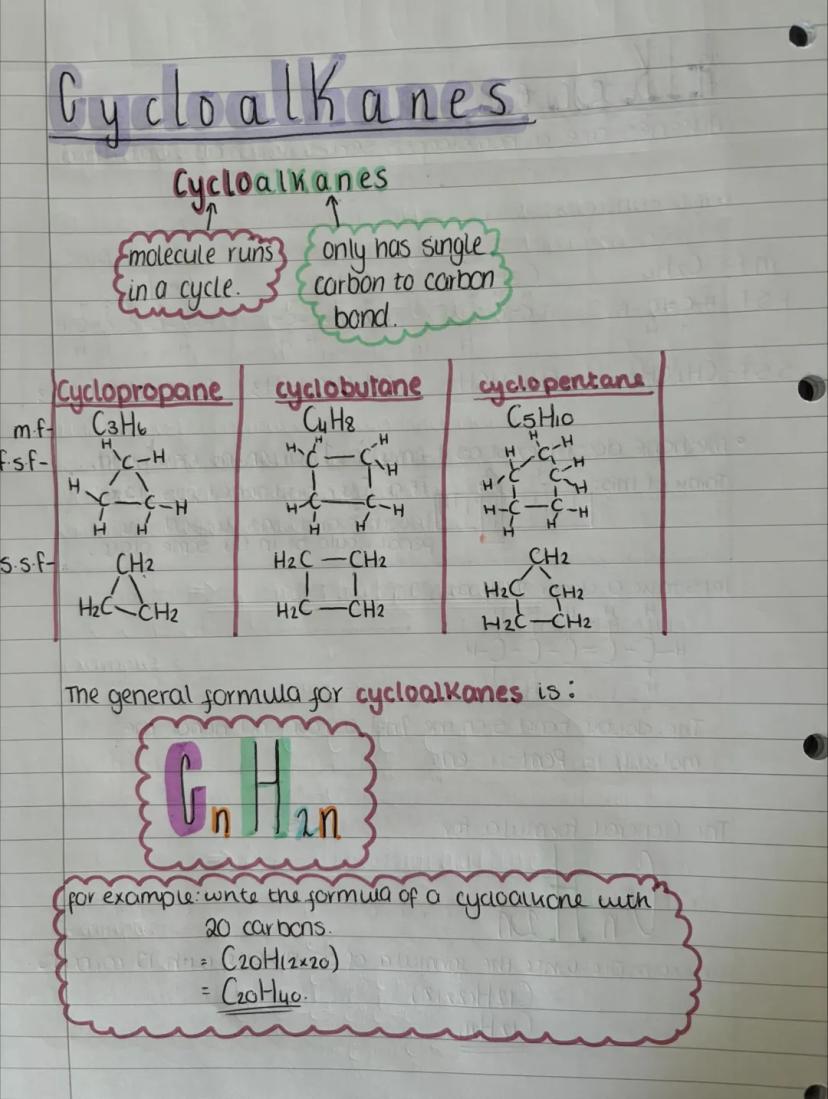 Cycloalkanes
Cycloalkanes
molecule runs
in a cycle.
only has single
carbon to carbon
bond.
Cyclopropane cyclobutane cyclopentane
m.f- C3H6 C4H8 C5H10
f.s.f-
H
C-H
H
C - C-H
H H
H H H
C - C
H
H-C - C-H
H H
H H
C
H H
C C
H H
H-C - C-H
H H
s.s.f-
CH2
H2C CH2
H2C - CH2
H2C - CH2
CH2
H2C CH2
H2C - CH2
The general formula for cycloalkanes is:
CnH2n
for example: write the formula of a cycloalkane with
20 carbons.
= C20H(2x20)
= C20H40.